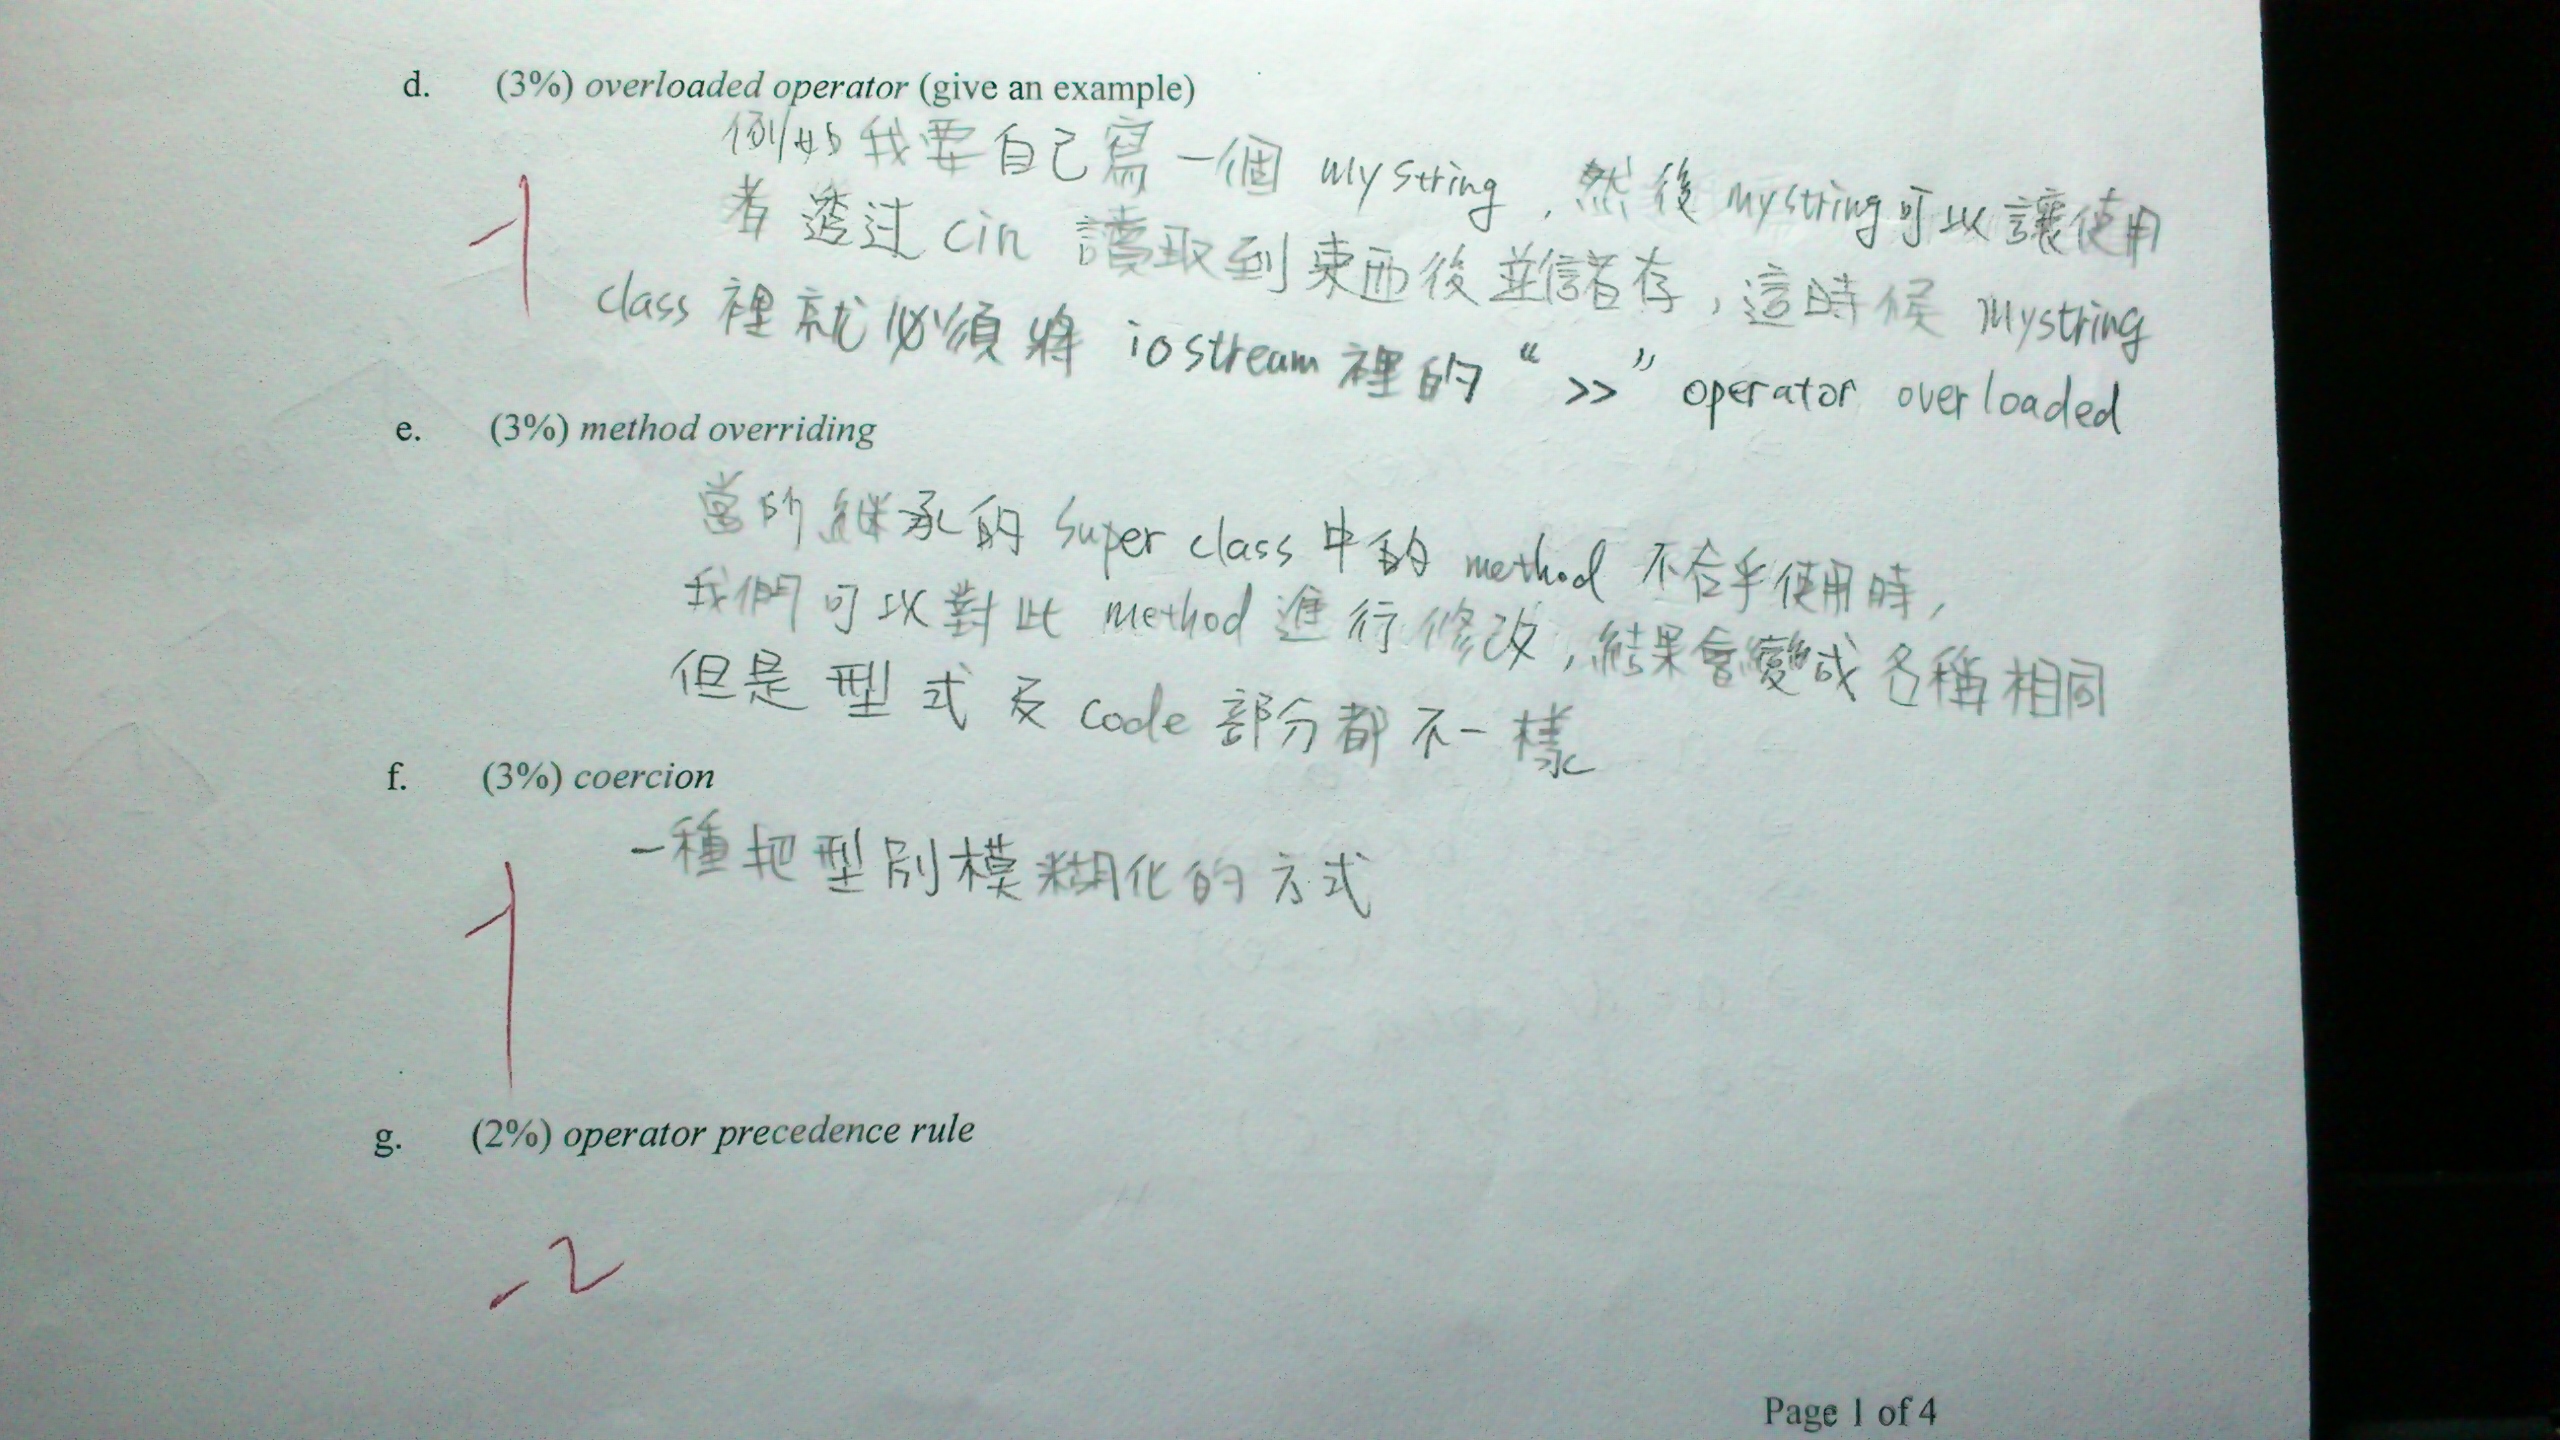 d. (3%) overloaded operator (give an example)
例如我要自己寫一個 mystring, 然後 mystring可以讓使用
者透过 cin 讀取到東西後並儲存, 這時候 mystring
class 裡就必須將 iostream 裡的 “ >> ” operator overloaded
-1
e. (3%) method overriding
當所繼承的 super class 中的 method 不合乎使用時,
我們可以對此 method 進行修改, 結果會變成名稱相同
但是型式及 code 部分都不一樣
f. (3%) coercion
一種把型別模糊化的方式
-1
g. (2%) operator precedence rule
-2
Page 1 of 4